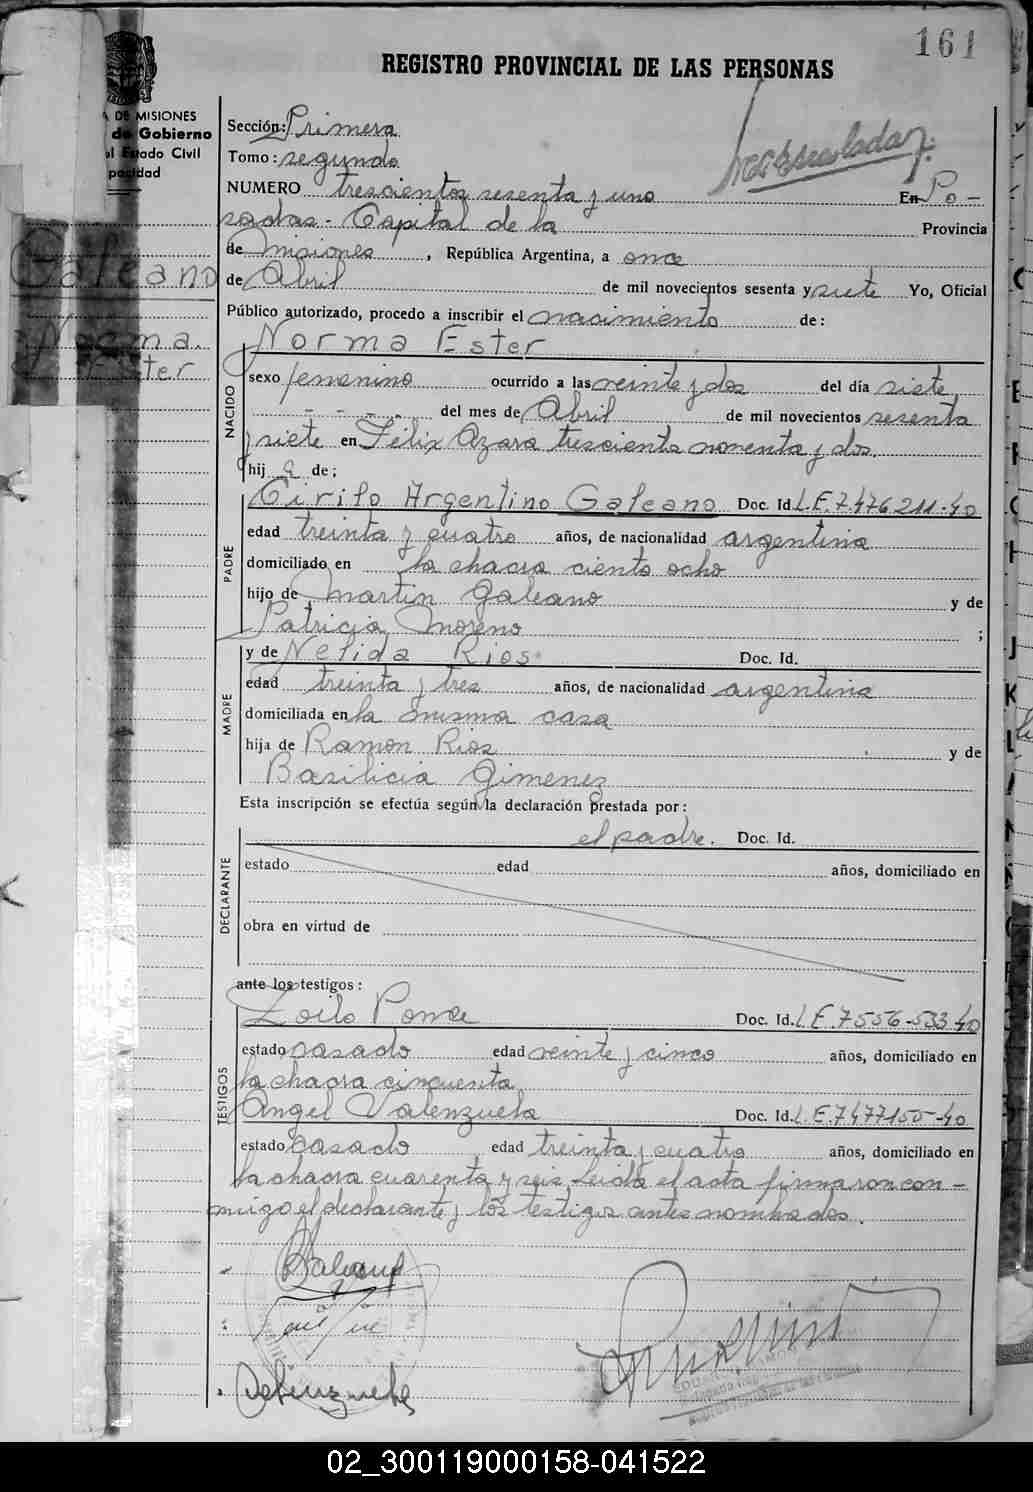 161
REGISTRO PROVINCIAL DE LAS PERSONAS
DE MISIONES
de Gobierno
Estado Civil
pacidad
Galeano
Norma
Ester
Sección: Primera
Tomo: segundo
NUMERO trescientos sesenta y uno En Po-
sadas - Capital de la Provincia
de Misiones, República Argentina, a once
de Abril de mil novecientos sesenta y siete Yo, Oficial
Público autorizado, procedo a inscribir el nacimiento de:
Norma Ester
NACIDO
sexo femenino ocurrido a las veinte y dos del día siete
- - - - del mes de Abril de mil novecientos sesenta
y siete en Félix Azara trescientos noventa y dos.
hija de;
PADRE
Cirilo Argentino Galeano Doc. Id. L.E. 7.476.211-40
edad treinta y cuatro años, de nacionalidad argentina
domiciliado en la chacra ciento ocho
hijo de Martin Galeano y de
Patricia Moreno ;
MADRE
y de Nelida Rios Doc. Id.
edad treinta y tres años, de nacionalidad argentina
domiciliada en la misma casa
hija de Ramon Rios y de
Basilicia Gimenez
Esta inscripción se efectúa según la declaración prestada por:
DECLARANTE
el padre. Doc. Id.
estado edad años, domiciliado en
obra en virtud de
ante los testigos:
TESTIGOS
Zoilo Ponce Doc. Id. L.E. 7556-533-40
estado casado edad veinte y cinco años, domiciliado en
la chacra cincuenta
Angel Valenzuela Doc. Id. L.E. 7.477.150-40
estado casado edad treinta y cuatro años, domiciliado en
la chacra cuarenta y seis Leida el acta firmaron con-
migo el declarante y los testigos antes nombrados.
02_300119000158-041522